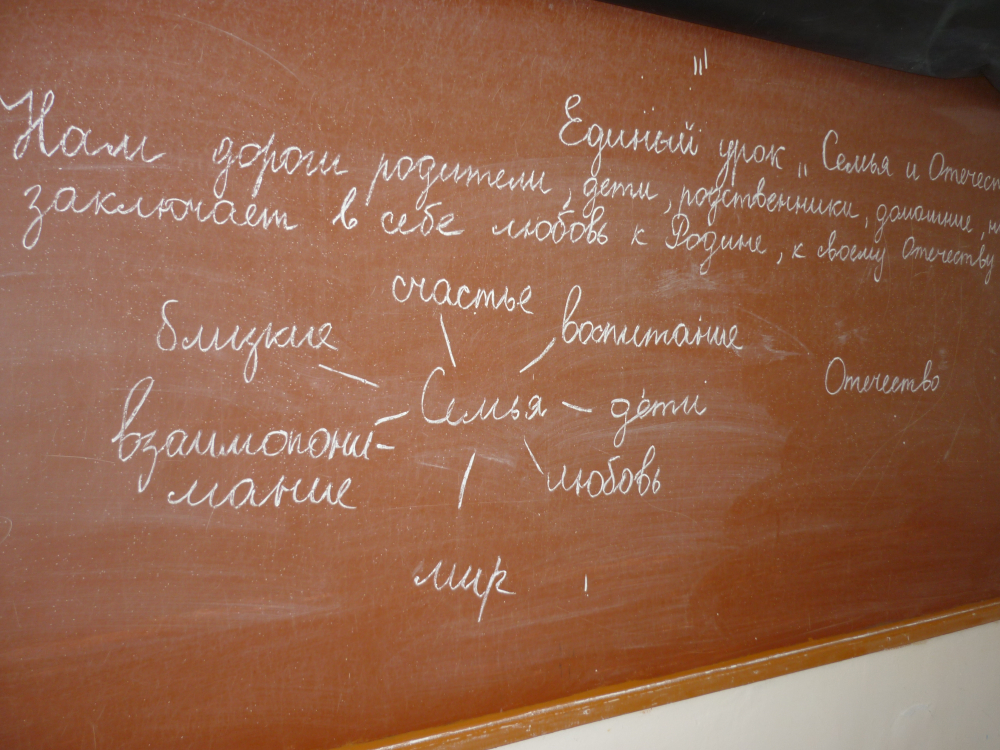 Единый урок „ Семья и Отечест
Нам дороги родители, дети, родственники, домашние, но
заключает в себе любовь к Родине, к своему Отечеству
счастье
близкие
воспитание
Семья
дети
Отечество
взаимопони-
мание
любовь
мир